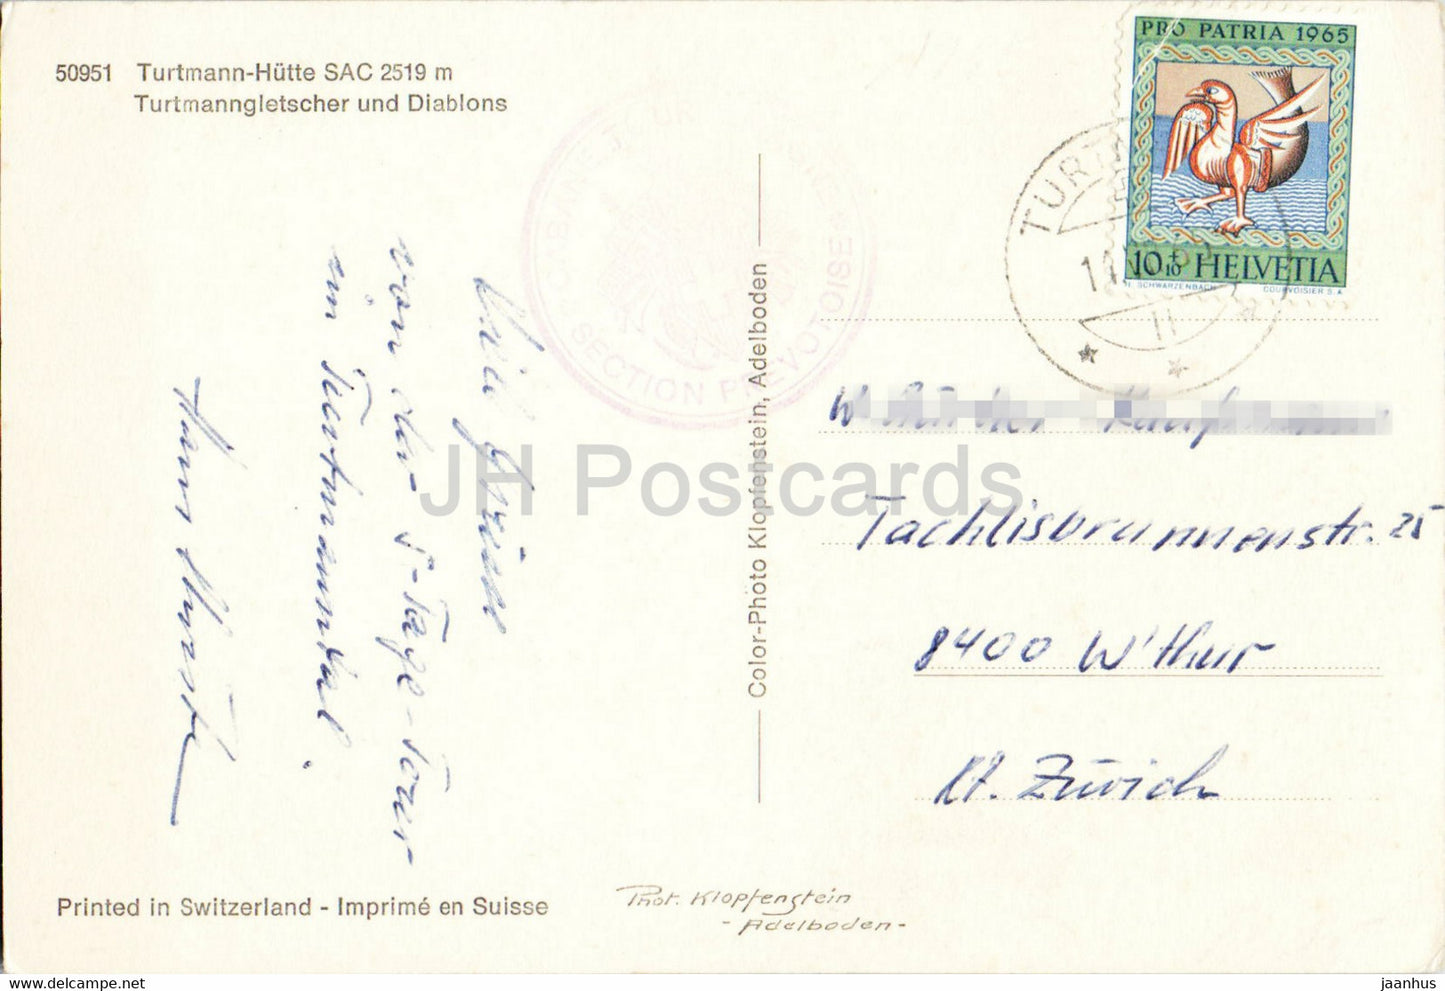 50951 Turtmann-Hütte SAC 2519 m
Turtmanngletscher und Diablons
PRO PATRIA 1965
10+10 HELVETIA
COURVOISIER S.A.
SCHWARZENBACH
TURT
11
SECTION PREVOTOISE
Viele Grüsse
von der 5-Tage-Tour
im Turtmanntal.
Hans
Color-Photo Klopfenstein, Adelboden
JH Postcards
Tachlisbrunnenstr. 25
8400 W'thur
Kt. Zürich
Printed in Switzerland - Imprimé en Suisse
Phot. Klopfenstein
- Adelboden -
jaanhus
www.delcampe.net